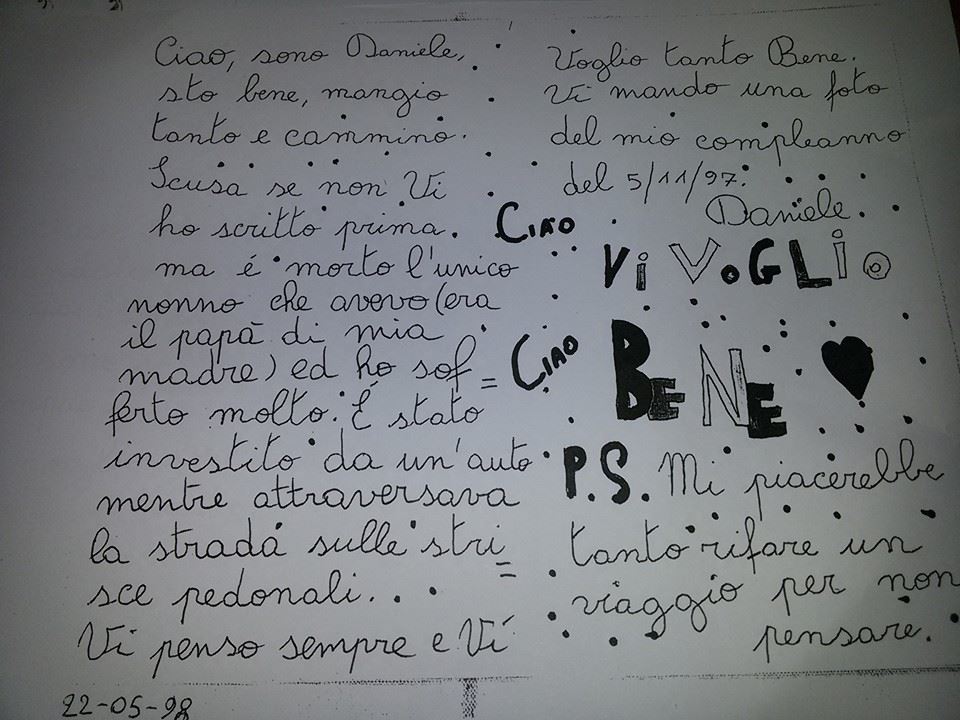 Ciao, sono Daniele,
sto bene, mangio
tanto e cammino.
Scusa se non Vi
ho scritto prima.
ma é morto l'unico
nonno che avevo (era
il papà di mia
madre) ed ho sof=
ferto molto. É stato
investito da un'auto
mentre attraversava
la strada sulle stri=
sce pedonali...
Vi penso sempre e Vi
22-05-98
Voglio tanto Bene.
Vi mando una foto
del mio compleanno
del 5/11/97.
Daniele.
CIAO
Vi VoGLiO
CIAO
BENE
P.S. Mi piacerebbe
tanto rifare un
viaggio per non
pensare.